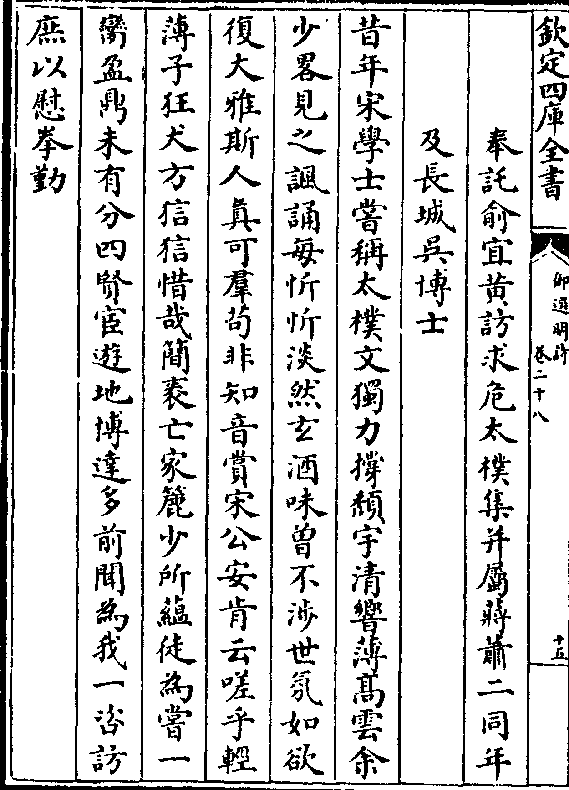 欽定四庫全書
御選明詩
卷二十八
十五
奉託俞宜黄訪求危太樸集并屬蔣蕭二同年
及長城吳博士
昔年宋學士嘗稱太樸文獨力撐頽宇清響薄髙雲余
少畧見之諷誦每忻忻淡然玄酒味曾不涉世氛如欲
復大雅斯人真可羣苟非知音賞宋公安肯云嗟乎輕
薄子狂犬方狺狺惜哉簡袠亡家簏少所藴徒為嘗一
臠盈鼎未有分四賢宦遊地博達多前聞為我一咨訪
庶以慰拳勤